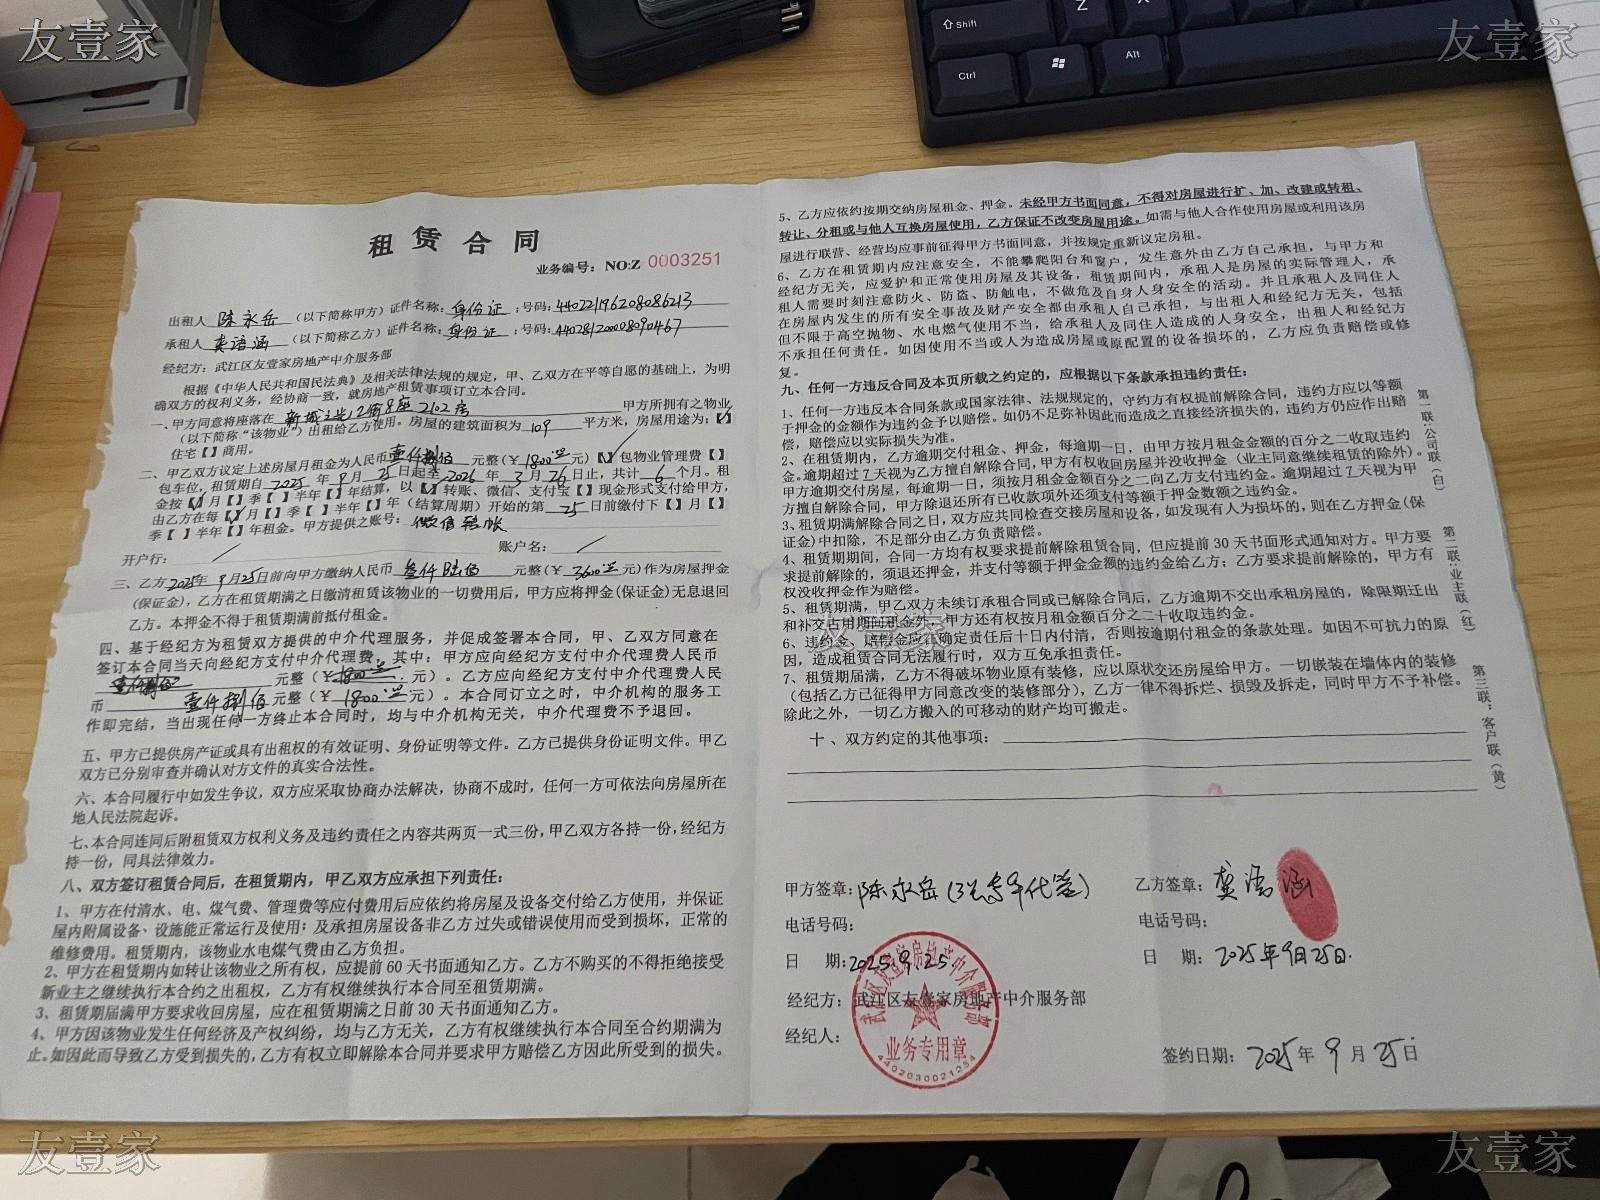 友壹家
友壹家
Shift
Z
X
Ctrl
Alt
租赁合同
业务编号：NO:Z 0003251
出租人 陈永岳 （以下简称甲方）证件名称：身份证；号码：440221196208086213
承租人 龚语涵 （以下简称乙方）证件名称：身份证；号码：440281200008090467
经纪方：武江区友壹家房地产中介服务部
根据《中华人民共和国民法典》及相关法律法规的规定，甲、乙双方在平等自愿的基础上，为明
确双方的权利义务，经协商一致，就房地产租赁事项订立本合同。
一、甲方同意将座落在 新城之光12街8座2102房 甲方所拥有之物业
（以下简称“该物业”）出租给乙方使用。房屋的建筑面积为 109 平方米，房屋用途为：【✓】
住宅【 】商用。
二、甲乙双方议定上述房屋月租金为人民币 壹仟捌佰 元整（￥1800元）【✓】包物业管理费【 】
包车位，租赁期自 2025 年 9 月 25 日起至 2026 年 3 月 26 日止，共计 6 个月。租
金按【✓】月【 】季【 】半年【 】年结算，以【✓】转账、微信、支付宝【 】现金形式支付给甲方，
由乙方在每【✓】月【 】季【 】半年【 】年（结算周期）开始的第 25 日前缴付下【 】月【 】
季【 】半年【 】年租金。甲方提供之账号： 微信转帐
开户行： / 账户名： /
三、乙方 2025年9月25日前向甲方缴纳人民币 叁仟陆佰 元整（￥3600元）作为房屋押金
（保证金），乙方在租赁期满之日缴清租赁该物业的一切费用后，甲方应将押金（保证金）无息退回
乙方。本押金不得于租赁期满前抵付租金。
四、基于经纪方为租赁双方提供的中介代理服务，并促成签署本合同，甲、乙双方同意在
签订本合同当天向经纪方支付中介代理费，其中：甲方应向经纪方支付中介代理费人民币
壹仟捌佰 元整（￥1800元）。乙方应向经纪方支付中介代理费人民
币 壹仟捌佰 元整（￥1800元）。本合同订立之时，中介机构的服务工
作即完结，当出现任何一方终止本合同时，均与中介机构无关，中介代理费不予退回。
五、甲方已提供房产证或具有出租权的有效证明、身份证明等文件。乙方已提供身份证明文件。甲乙
双方已分别审查并确认对方文件的真实合法性。
六、本合同履行中如发生争议，双方应采取协商办法解决，协商不成时，任何一方可依法向房屋所在
地人民法院起诉。
七、本合同连同后附租赁双方权利义务及违约责任之内容共两页一式三份，甲乙双方各持一份，经纪方
持一份，同具法律效力。
八、双方签订租赁合同后，在租赁期内，甲乙双方应承担下列责任：
1、甲方在付清水、电、煤气费、管理费等应付费用后应依约将房屋及设备交付给乙方使用，并保证
屋内附属设备、设施能正常运行及使用；及承担房屋设备非乙方过失或错误使用而受到损坏，正常的
维修费用。租赁期内，该物业水电煤气费由乙方负担。
2、甲方在租赁期内如转让该物业之所有权，应提前60天书面通知乙方。乙方不购买的不得拒绝接受
新业主之继续执行本合约之出租权，乙方有权继续执行本合同至租赁期满。
3、租赁期届满甲方要求收回房屋，应在租赁期满之日前30天书面通知乙方。
4、甲方因该物业发生任何经济及产权纠纷，均与乙方无关，乙方有权继续执行本合同至合约期满为
止。如因此而导致乙方受到损失的，乙方有权立即解除本合同并要求甲方赔偿乙方因此所受到的损失。
5、乙方应依约按期交纳房屋租金、押金。未经甲方书面同意，不得对房屋进行扩、加、改建或转租、
转让、分租或与他人互换房屋使用，乙方保证不改变房屋用途。如需与他人合作使用房屋或利用该房
屋进行联营、经营均应事前征得甲方书面同意，并按规定重新议定房租。
6、乙方在租赁期内应注意安全，不能攀爬阳台和窗户，发生意外由乙方自己承担，与甲方和
经纪方无关，应爱护和正常使用房屋及其设备，租赁期间内，承租人是房屋的实际管理人，承
租人需要时刻注意防火、防盗、防触电，不做危及自身人身安全的活动。并且承租人及同住人
在房屋内发生的所有安全事故及财产安全都由承租人自己承担，与出租人和经纪方无关，包括
但不限于高空抛物、水电燃气使用不当，给承租人及同住人造成的人身安全，出租人和经纪方
不承担任何责任。如因使用不当或人为造成房屋或原配置的设备损坏的，乙方应负责赔偿或修
复。
九、任何一方违反合同及本页所载之约定的，应根据以下条款承担违约责任：
1、任何一方违反本合同条款或国家法律、法规规定的，守约方有权提前解除合同，违约方应以等额
于押金的金额作为违约金予以赔偿。如仍不足弥补因此而造成之直接经济损失的，违约方仍应作出赔
偿，赔偿应以实际损失为准。
2、在租赁期内，乙方逾期交付租金、押金，每逾期一日，由甲方按月租金金额的百分之二收取违约
金。逾期超过7天视为乙方擅自解除合同，甲方有权收回房屋并没收押金（业主同意继续租赁的除外）。
甲方逾期交付房屋，每逾期一日，须按月租金金额百分之二向乙方支付违约金。逾期超过7天视为甲
方擅自解除合同，甲方除退还所有已收款项外还须支付等额于押金数额之违约金。
3、租赁期满解除合同之日，双方应共同检查交接房屋和设备，如发现有人为损坏的，则在乙方押金（保
证金）中扣除，不足部分由乙方负责赔偿。
4、租赁期期间，合同一方均有权要求提前解除租赁合同，但应提前30天书面形式通知对方。甲方要
求提前解除的，须退还押金，并支付等额于押金金额的违约金给乙方；乙方要求提前解除的，甲方有
权没收押金作为赔偿。
5、租赁期满，甲乙双方未续订承租合同或已解除合同后，乙方逾期不交出承租房屋的，除限期迁出
和补交占用期间租金外，甲方还有权按月租金额百分之二十收取违约金。
6、违约金、赔偿金应在确定责任后十日内付清，否则按逾期付租金的条款处理。如因不可抗力的原
因，造成租赁合同无法履行时，双方互免承担责任。
7、租赁期届满，乙方不得破坏物业原有装修，应以原状交还房屋给甲方。一切嵌装在墙体内的装修
（包括乙方已征得甲方同意改变的装修部分），乙方一律不得拆烂、损毁及拆走，同时甲方不予补偿。
除此之外，一切乙方搬入的可移动的财产均可搬走。
十、双方约定的其他事项：
第一联：公司联（白）
第二联：业主联（红）
第三联：客户联（黄）
友壹家
甲方签章：陈永岳
乙方签章：龚语涵
电话号码：
电话号码：
日 期：2025.9.25
日 期：2025年9月25日.
经纪方：武江区友壹家房地产中介服务部
经纪人：
武江区友壹家房地产中介服务部
业务专用章
4402030021254
签约日期：2025年9月25日
友壹家
友壹家